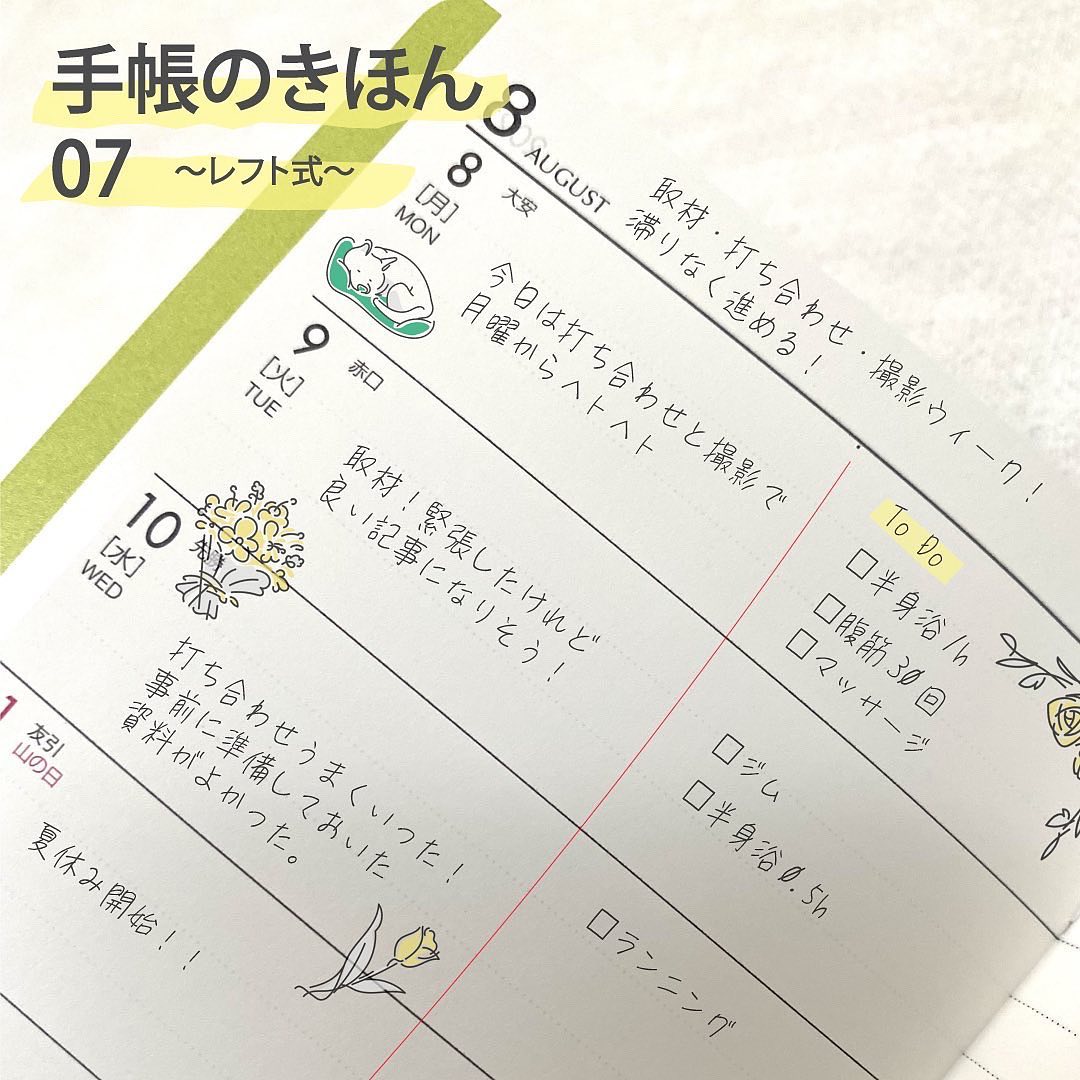 手帳のきほん
07 ～レフト式～
8
AUGUST
取材・打ち合わせ・撮影ウィーク！
滞りなく進める！
8
[月]
MON
大安
今日は打ち合わせと撮影で
月曜からヘトヘト
To Do
半身浴1h
腹筋30回
マッサージ
9
[火]
TUE
赤口
取材！緊張したけれど
良い記事になりそう！
ジム
半身浴0.5h
10
[水]
WED
先勝
打ち合わせうまくいった！
事前に準備しておいた
資料がよかった。
ランニング
1
友引
山の日
夏休み開始！！